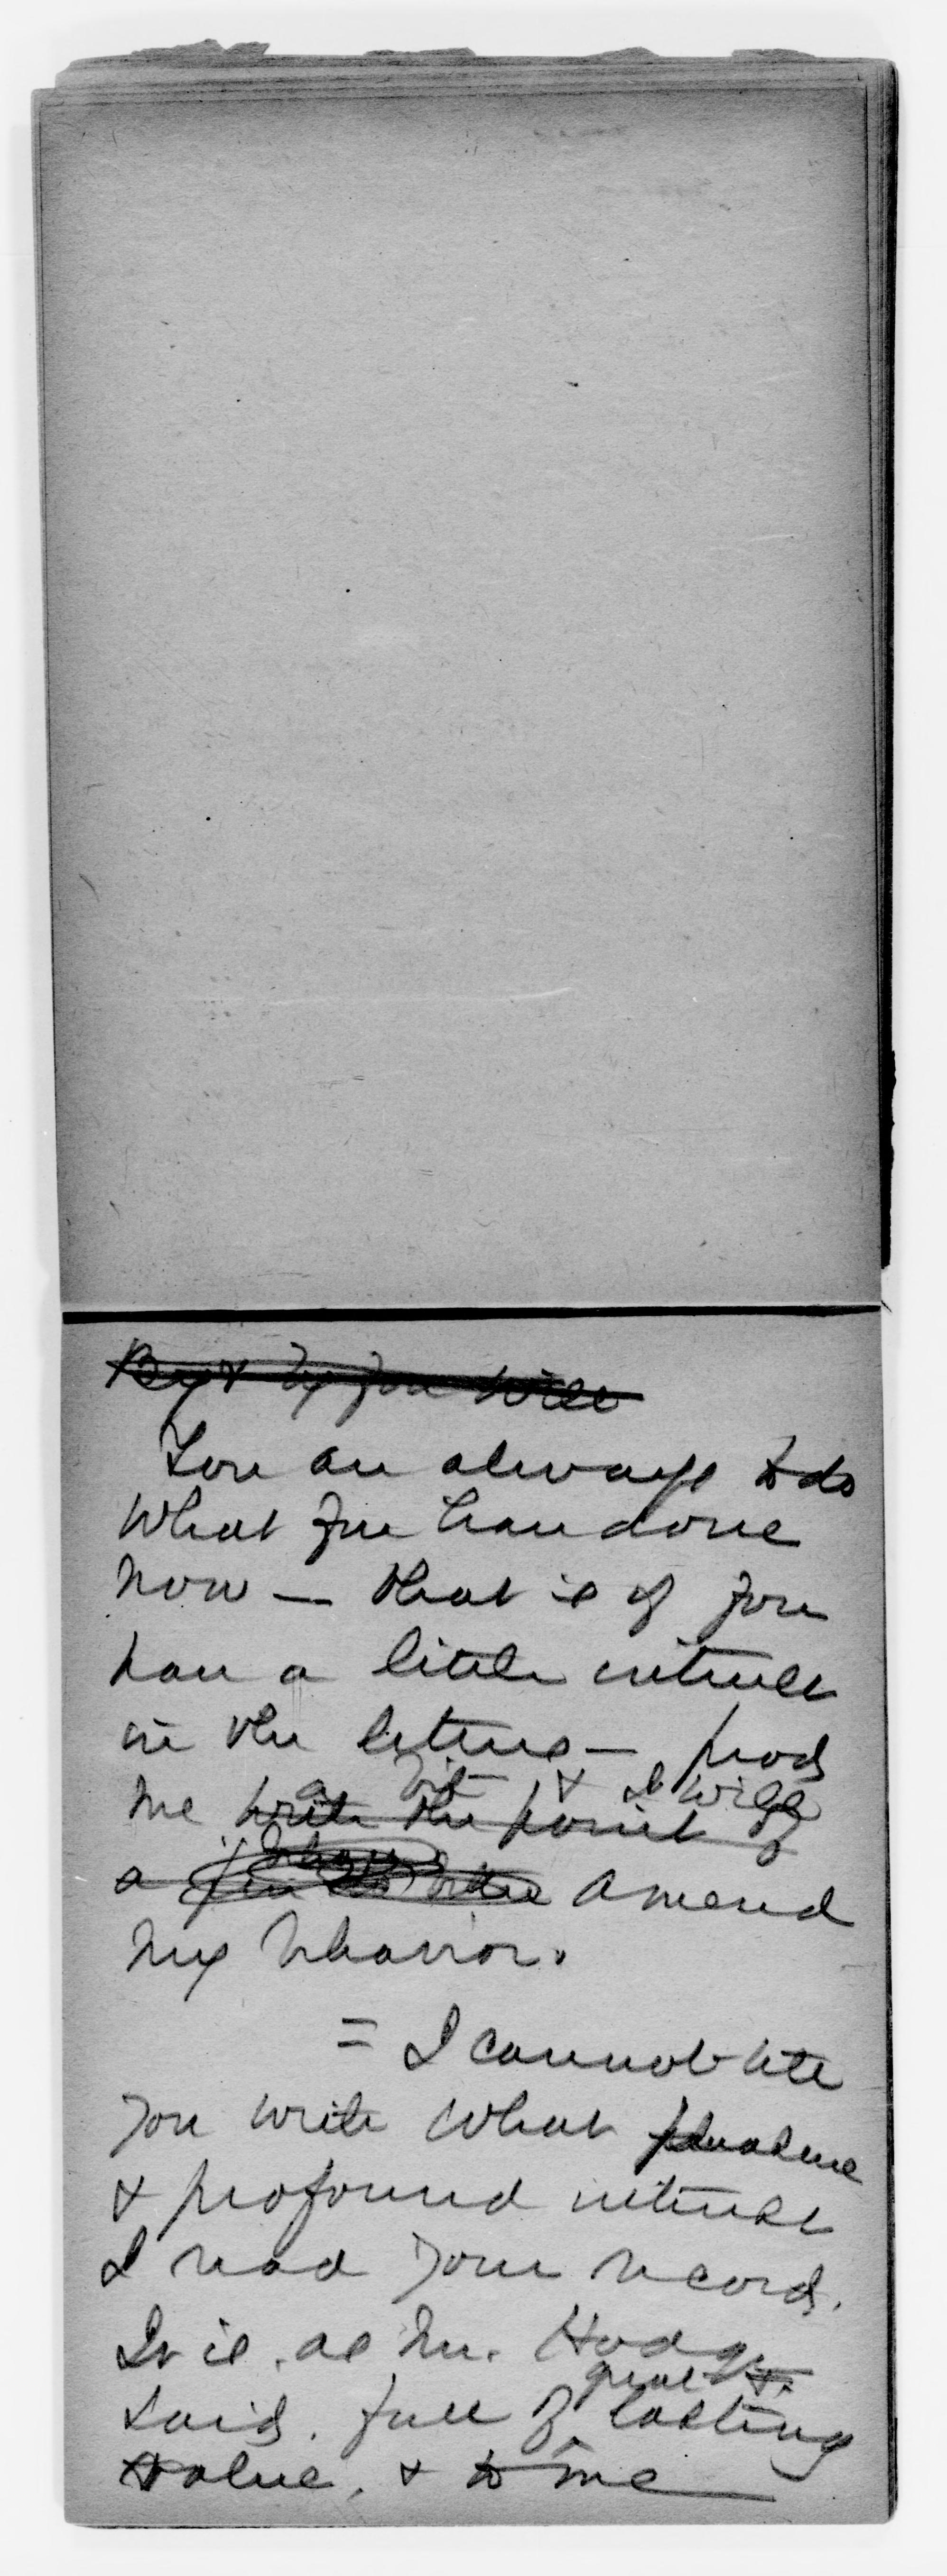 By & by you will
You are always to do
What you have done
now — that is if you
have a little interest
in the letters — prod
a bit & I will
me write the point of
a amend
my behavior.
= I cannot tell
you write what pleasure
& profound interest
I read your record.
It is, as Mr. Hodge
great &
said, full of lasting
value, & to me